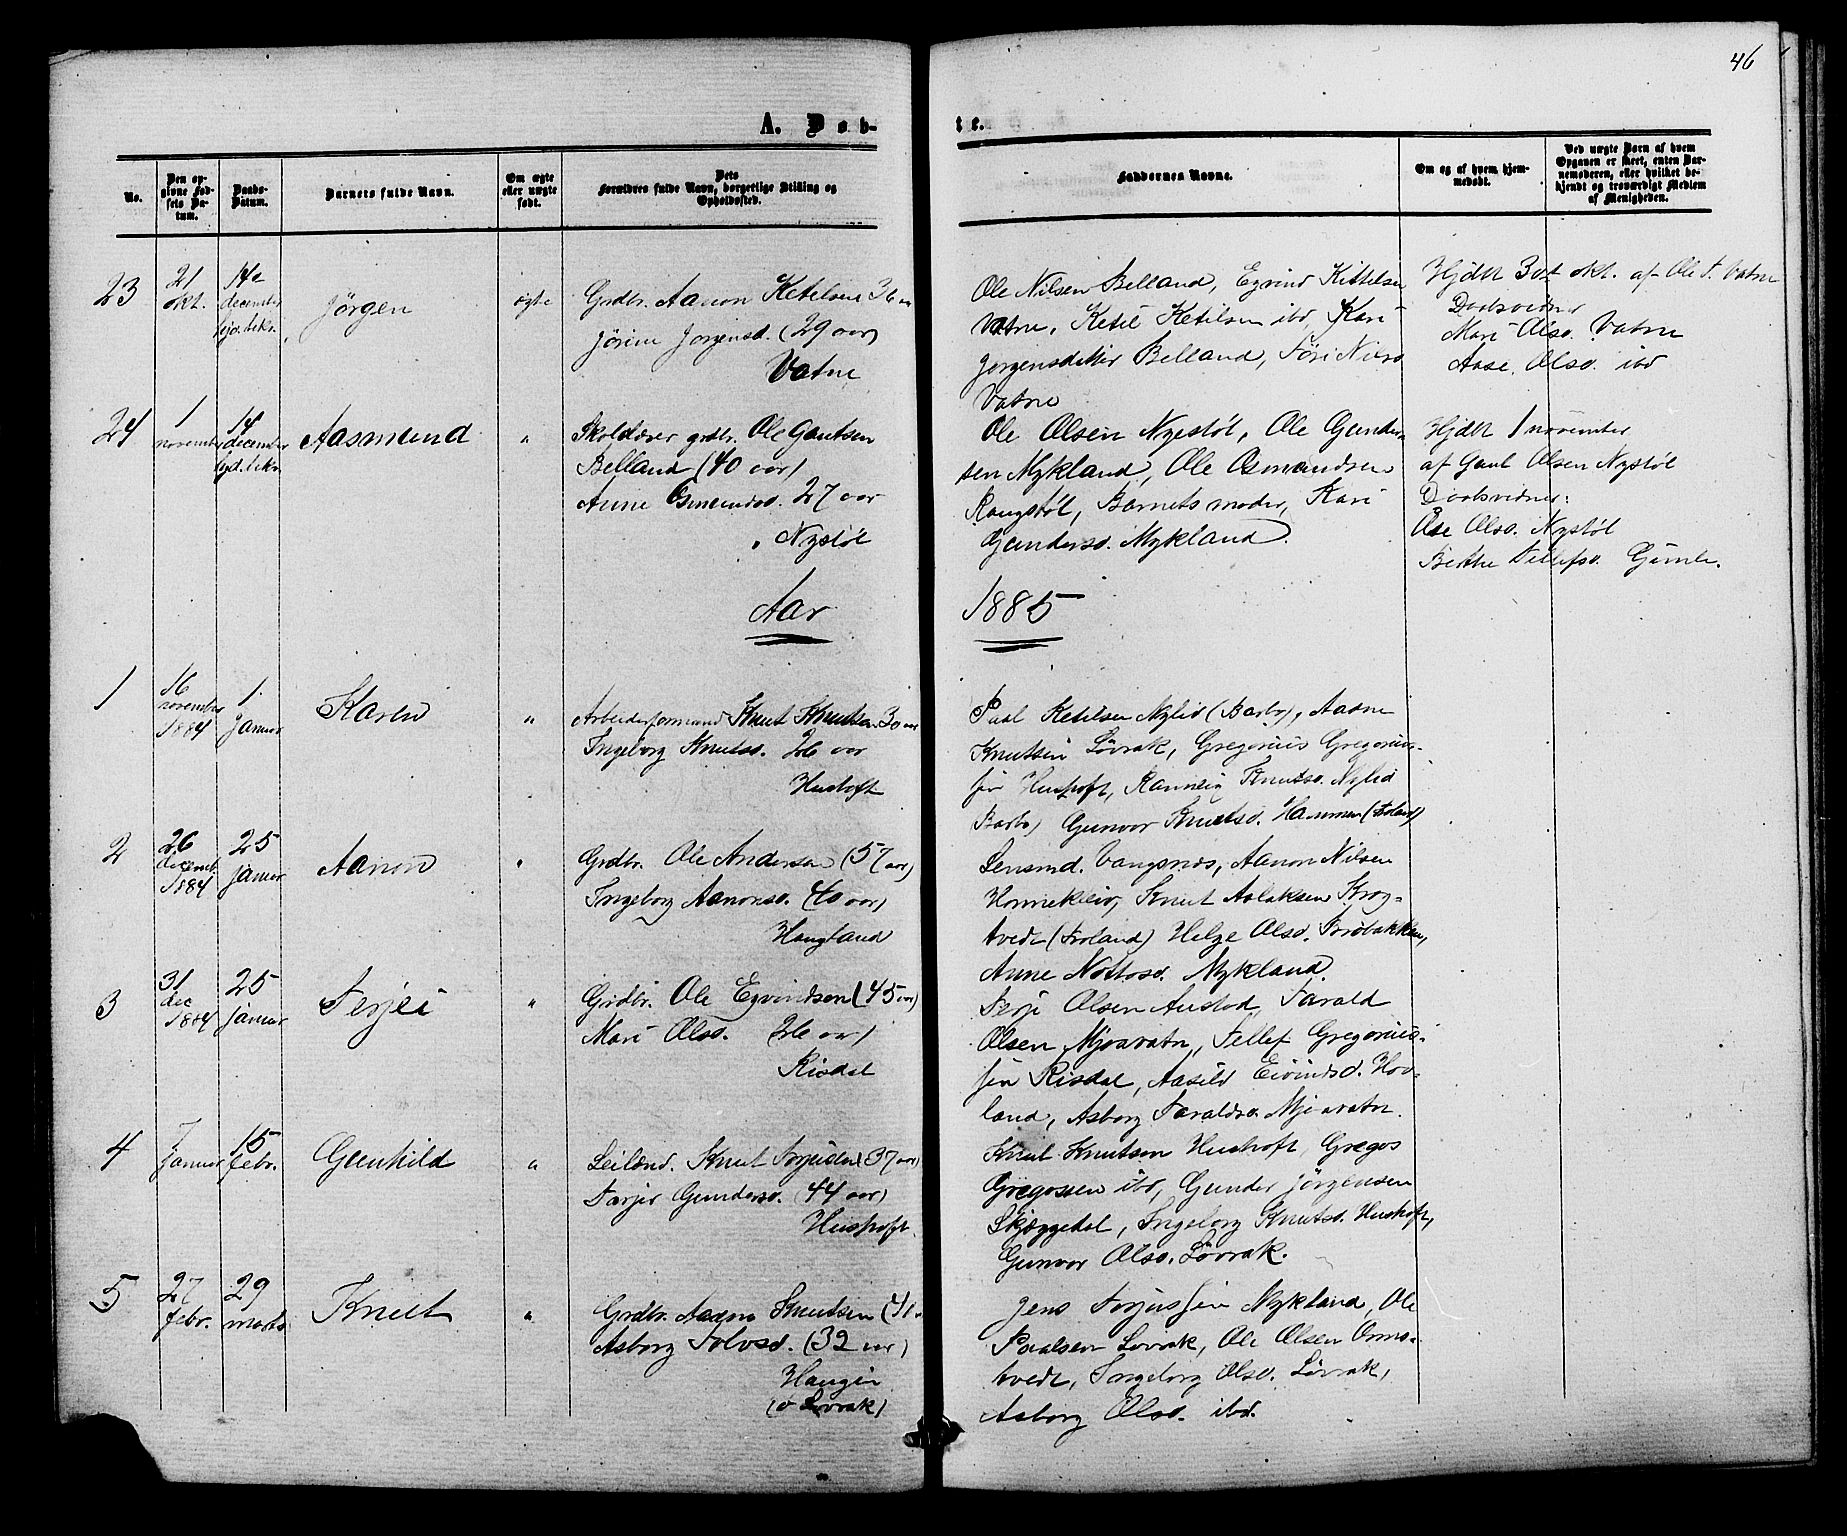 46
A. Døb-
te.
No.
Den op-
givne Fød-
sels Da-
tum.
Daabs-
Datum.
Barnets fulde Navn.
Om ægte
eller uægte
født.
Dets
Forældres fulde Navn, borgerlige Stilling og
Opholdssted.
Faddernes Navne.
Om og af hvem hjem-
medøbt.
Ved uægte Børn af hvem
Opgaven er skeet, enten Bar-
nemoderen, eller hvilket be-
kjendt og troværdigt Medlem
af Menigheden.
23
21
okt.
14
december
Jörgen
ægte
Grdbr. Aanon Ketelsen 36
Jörine Jorgensd. (29 aar)
Vatne
Ole Nilsen Belland, Eyvind Kittelsen
Vatne, Ketil Ketilsen ibd, Kari
Jorgensdatter Belland, Nilsd.
Vatne
Hjdbt 30t okt. af Ole T. Vatne
Daabsvidner
Mari Olsd. Vatne
Aase Olsd. ibd
24
1
november
14
december
Aasmund
"
Skolelærer grdbr. Ole Gautsen
Belland (40 aar)
Anne Osmundsd. 27 aar
Nystöl
Ole Olsen Nystöl, Ole Gunder-
sen Mykland, Ole Osmundsen
Rangstöl, Barnets moder, Kari
Gundersd. Mykland.
Hjdbt 1 november
af Gaut Olsen Nystöl
Daabsvidner:
Åse Olsd. Nystöl
Berthe Tellefsd. Gimle.
Aar
1885
1
16
november
1884
1.
Januar
Karen
"
Arbeiderformand Knut Knutsen 30 aar
Ingeborg Knutsd. 26 aar
Hushoft
Paal Ketilsen Nylid (Barbo), Aadne
Knutsen Lövrak, Gregorius Gregorius-
sen Hushoft, Knutsd. Nylid
Barbo) Gunvor Knutsd. Hammen (Froland)
2
26
decemb.
1884
25
januar
Aanon
"
Grdbr. Ole Andersen (57 aar)
Ingeborg Aanonsd. (40 aar)
Haugland
Lensmd. Vangsnes, Aanon Nilsen
Honnekleiv, Knut Aslaksen Krog-
tvedt (Froland) Helge Olsd.
Anne Nottosd. Mykland.
3
31
dec
1884
25
januar
Terjei
"
Grdbr. Ole Eyvindsen (45 aar)
Mari Olsd. 26 aar)
Risdal
Terje Olsen Austad, Tarald
Olsen Mjoavatn, Tellef Gregorius-
sen Risdal, Aasild Eivindsd. Hov-
land, Asborg Taraldsd. Mjoavatn.
4
7
Januar
15
febr.
Gunhild
"
Leilænd. Knut Torjusen (37 aar)
Tarjer Gundersd. (44 aar)
Hushoft.
Knut Knutsen Hushoft, Gregos
Gregossen ibd, Gunder Jörgensen
Skjæggedal, Ingeborg Knutsd. Hushoft,
Gunvor Olsd. Lövrak.
5
27
febr.
29
marts
Knut
"
Grdbr. Aadne Knutsen (41
Asborg Tolvsd. (32 aar)
Haugen
(o Lövrak)
Jens Torjussen Mykland, Ole
Paalsen Lovrak, Ole Olsen Orms-
tvedt, Ingeborg Olsd. Lövrak,
Asborg Olsd. ibd.